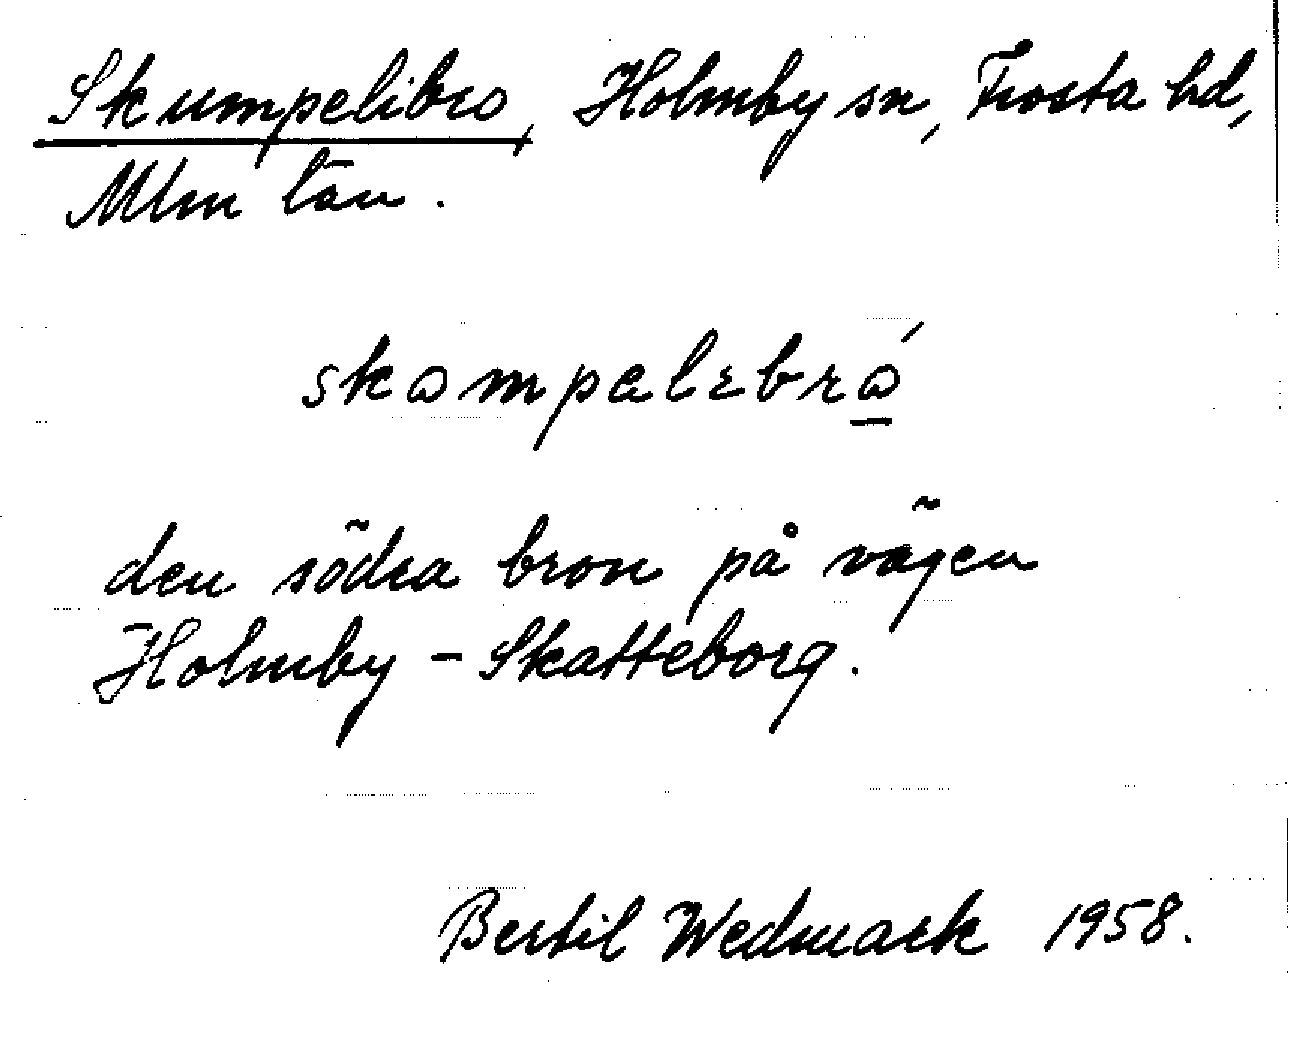 Skumpelibro, Holmby sn, Frosta hd,
Mlm län.
skɷmpəlɛbrɷ̲́
den södra bron på vägen
Holmby - Skatteborg.
Bertil Wedmark 1958.